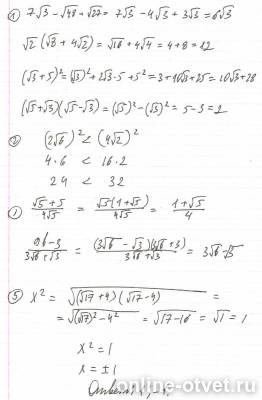 ① 7√3 - √48 + √27 = 7√3 - 4√3 + 3√3 = 6√3
√2 (√8 + 4√2) = √16 + 4√4 = 4 + 8 = 12
(√3 + 5)² = (√3)² + 2√3 · 5 + 5² = 3 + 10√3 + 25 = 10√3 + 28
(√5 + √3)(√5 - √3) = (√5)² - (√3)² = 5 - 3 = 2
② (2√6)² < (4√2)²
4 · 6 < 16 · 2
24 < 32
(√5 + 5)/(4√5) = (√5(1 + √5))/(4√5) = (1 + √5)/4
⑤ x² = √((√17 + 4)(√17 - 4)) =
= √((√17)² - 4²) = √(17 - 16) = √1 = 1
x² = 1
x = ±1
Ответ: 1, -1.
online-otvet.ru